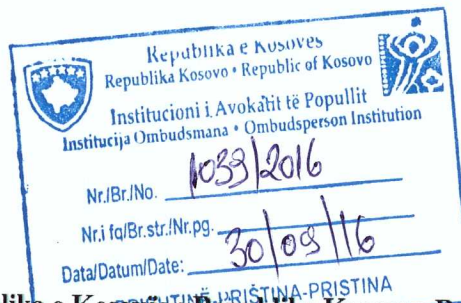 Republika e Kosovës
Republika Kosovo • Republic of Kosovo
Institucioni i Avokatit të Popullit
Institucija Ombudsmana • Ombudsperson Institution
Nr./Br./No. 1039/2016
Nr.i fq/Br.str./Nr.pg.
Data/Datum/Date: 30/09/16
PRISHTINË-PRIŠTINA-PRISTINA